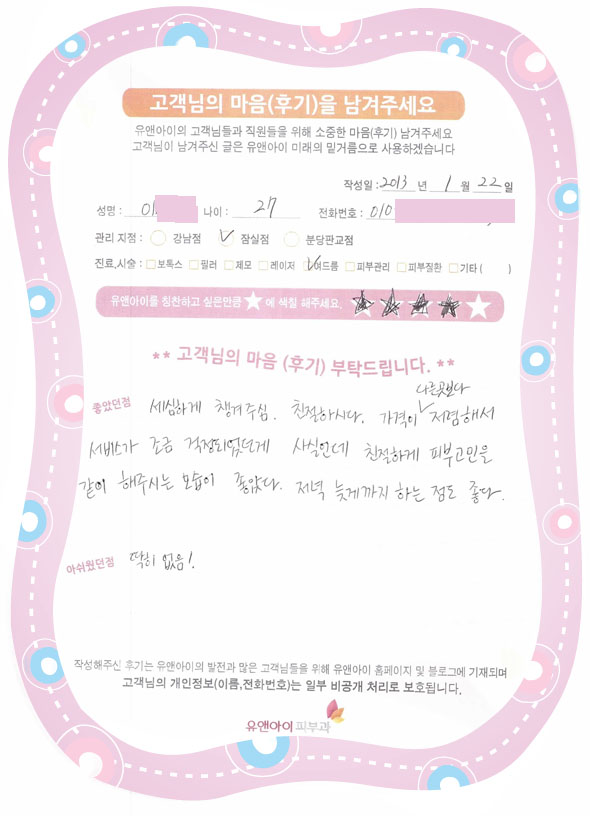 고객님의 마음(후기)을 남겨주세요
유앤아이의 고객님들과 직원들을 위해 소중한 마음(후기) 남겨주세요
고객님이 남겨주신 글은 유앤아이 미래의 밑거름으로 사용하겠습니다
작성일 : 2013 년 1 월 22 일
성명 : 이 나이 : 27 전화번호 : 010
관리 지점 : 강남점 잠실점 분당판교점
진료,시술 : 보톡스 필러 제모 레이저 여드름 피부관리 피부질환 기타 ( )
유앤아이를 칭찬하고 싶은만큼 ★ 에 색칠 해주세요.
** 고객님의 마음 (후기) 부탁드립니다. **
다른곳보다
좋았던점 세심하게 챙겨주심. 친절하시다. 가격이 저렴해서
서비스가 조금 걱정되었던게 사실인데 친절하게 피부고민을
같이 해주시는 모습이 좋았다. 저녁 늦게까지 하는 점도 좋다.
아쉬웠던점 딱히 없음!
작성해주신 후기는 유앤아이의 발전과 많은 고객님들을 위해 유앤아이 홈페이지 및 블로그에 기재되며
고객님의 개인정보(이름,전화번호)는 일부 비공개 처리로 보호됩니다.
유앤아이피부과